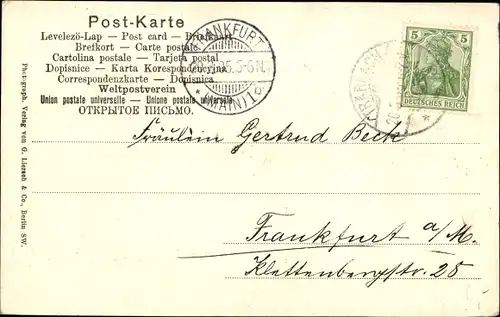 Post-Karte
Levelező-Lap — Post card — Briefkaart
Brefkort — Carte postale
Cartolina postale — Tarjeta postal
Dopisnice — Karta Korespondencyjna
Correspondenzkarte — Dopisnica
Weltpostverein
Union postale universelle — Unione postale universelle
ОТКРЫТОЕ ПИСЬМО.
FRANKFURT
5-6N.
(MAIN) 1
5 5
DEUTSCHES REICH
Photograph. Verlag von G. Liersch & Co., Berlin SW.
Fräulein Gertrud Beck
Frankfurt a/M.
Klettenbergstr. 25